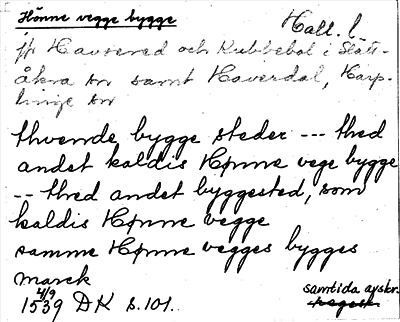 Hönne vegge bygge
Hall. l.
jfr Havsered och Kubbebol i Slätt-
åkra sn samt Haverdal, Harp-
linge sn
thvende bygge steder --- thed
andet kaldis Hønne vege bygge
-- thed andet byggested, som
kaldis Hønne vegge
samme Hønne vegges bygges
marck
4/9
1539 DK s. 101.
samtida avskr.